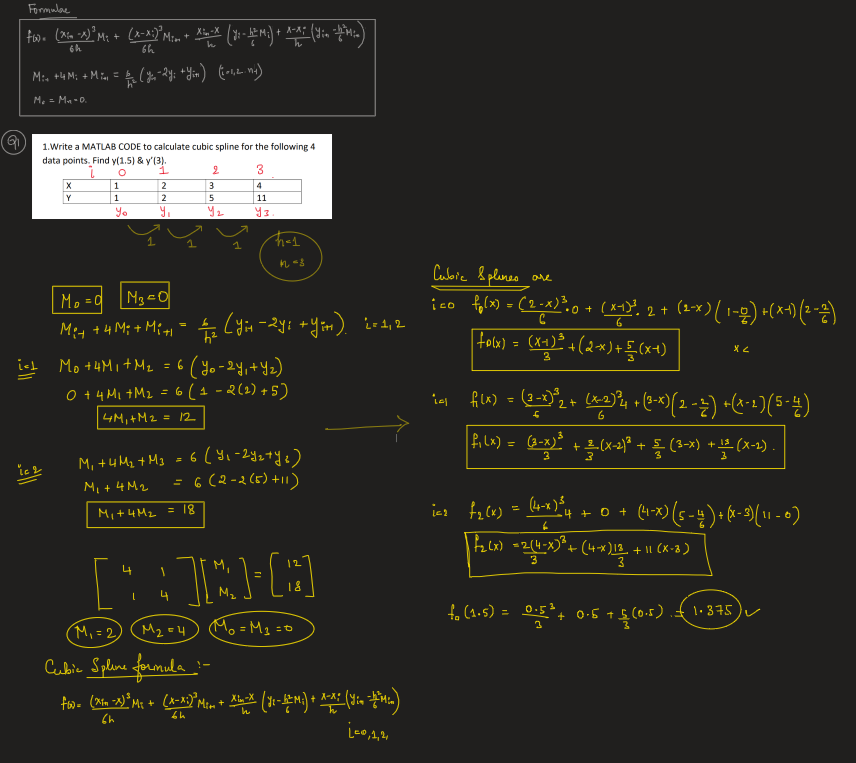 Formulae
f(x) = (x_{i+1} - x)³/6h M_i + (x - x_i)³/6h M_{i+1} + (x_{i+1} - x)/h (y_i - h²/6 M_i) + (x - x_i)/h (y_{i+1} - h²/6 M_{i+1})
M_{i-1} + 4M_i + M_{i+1} = 6/h² (y_{i-1} - 2y_i + y_{i+1}) (i=1,2..n-1)
M_0 = M_n = 0.
Q1
1.Write a MATLAB CODE to calculate cubic spline for the following 4
data points. Find y(1.5) & y'(3).
i 0 1 2 3
X 1 2 3 4
Y 1 2 5 11
y_0 y_1 y_2 y_3.
1 1 1
h=1
n=3
M_0 = 0 M_3 = 0
M_{i-1} + 4M_i + M_{i+1} = 6/h² (y_{i-1} - 2y_i + y_{i+1}). i=1,2
i=1 M_0 + 4M_1 + M_2 = 6(y_0 - 2y_1 + y_2)
0 + 4M_1 + M_2 = 6(1 - 2(2) + 5)
4M_1 + M_2 = 12
i=2 M_1 + 4M_2 + M_3 = 6(y_1 - 2y_2 + y_3)
M_1 + 4M_2 = 6(2 - 2(5) + 11)
M_1 + 4M_2 = 18
[4 1; 1 4] [M_1; M_2] = [12; 18]
M_1 = 2 M_2 = 4 M_0 = M_3 = 0
Cubic Spline formula :-
f(x) = (x_{i+1} - x)³/6h M_i + (x - x_i)³/6h M_{i+1} + (x_{i+1} - x)/h (y_i - h²/6 M_i) + (x - x_i)/h (y_{i+1} - h²/6 M_{i+1})
i=0,1,2,
Cubic Splines are
i=0 f_0(x) = (2-x)³/6 · 0 + (x-1)³/6 · 2 + (2-x)(1 - 0/6) + (x-1)(2 - 2/6)
f_0(x) = (x-1)³/3 + (2-x) + 5/3 (x-1)
x<
i=1 f_1(x) = (3-x)³/6 2 + (x-2)³/6 4 + (3-x)(2 - 2/6) + (x-2)(5 - 4/6)
f_1(x) = (3-x)³/3 + 2/3 (x-2)³ + 5/3 (3-x) + 13/3 (x-2).
i=2 f_2(x) = (4-x)³/6 4 + 0 + (4-x)(5 - 4/6) + (x-3)(11 - 0)
f_2(x) = 2(4-x)³/3 + (4-x) 13/3 + 11(x-3)
f_0(1.5) = 0.5³/3 + 0.5 + 5/3 (0.5). = 1.375 ✓